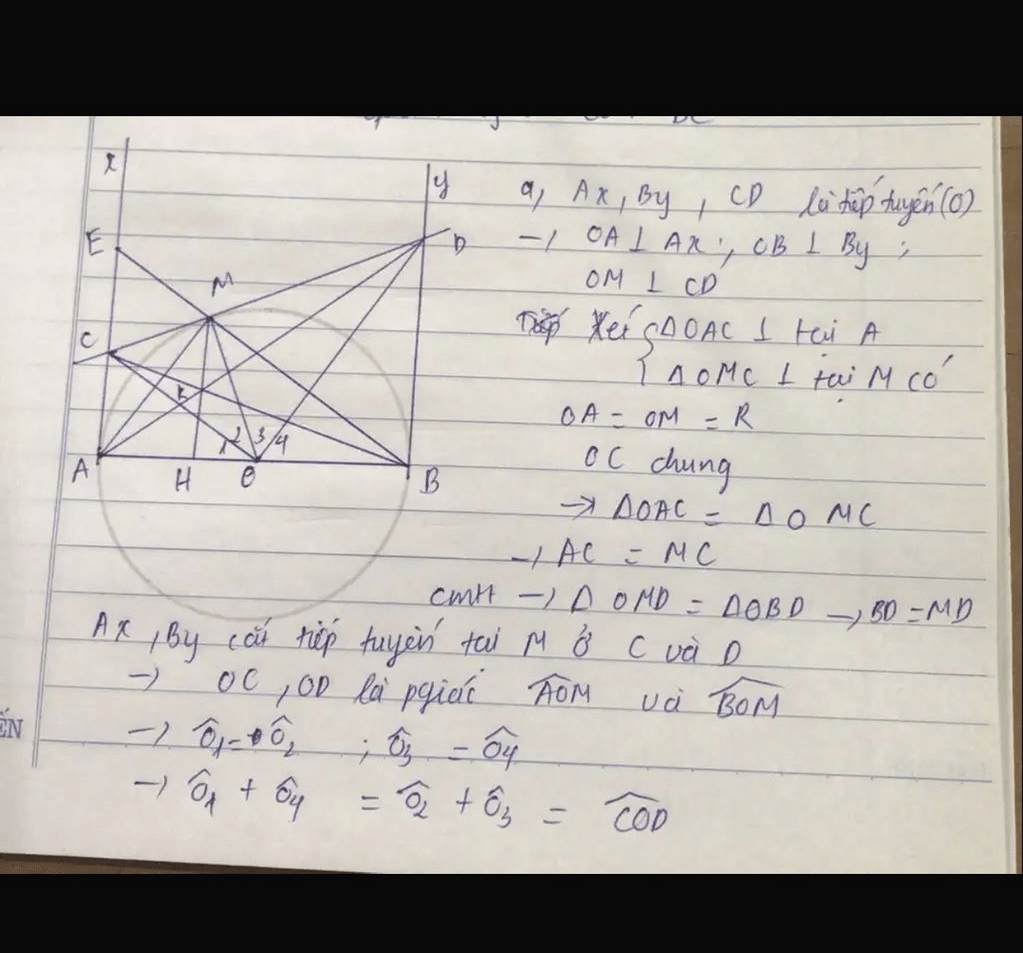 x
y
E
D
M
C
K
1 2 3 4
A
H
O
B
a, Ax, By, CD là tiếp tuyến (O)
→ OA ⊥ Ax ; OB ⊥ By ;
OM ⊥ CD
Xét { ΔOAC ⊥ tại A
ΔOMC ⊥ tại M có
OA = OM = R
OC chung
→ ΔOAC = ΔOMC
→ AC = MC
cmtt → ΔOMD = ΔOBD → BD = MD
Ax, By cắt tiếp tuyến tại M ở C và D
→ OC, OD là pgiác \widehat{AOM} và \widehat{BOM}
→ Ô1 = Ô2 ; Ô3 = Ô4
→ Ô1 + Ô4 = Ô2 + Ô3 = \widehat{COD}
ẾN